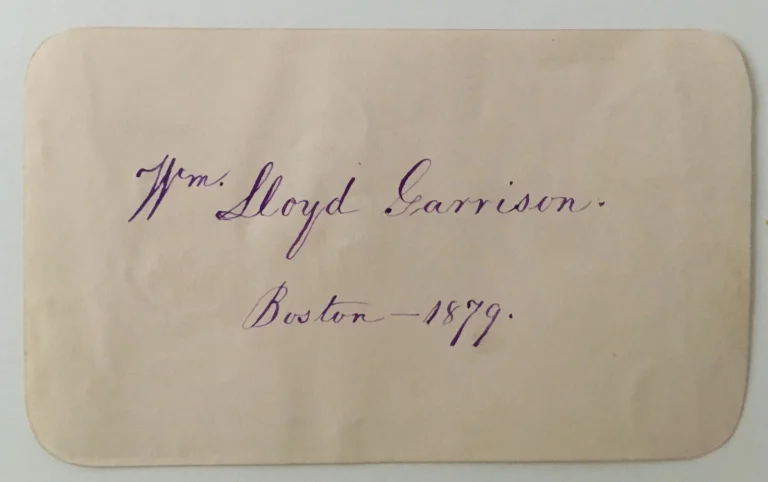 Wm. Lloyd Garrison.
Boston — 1879.